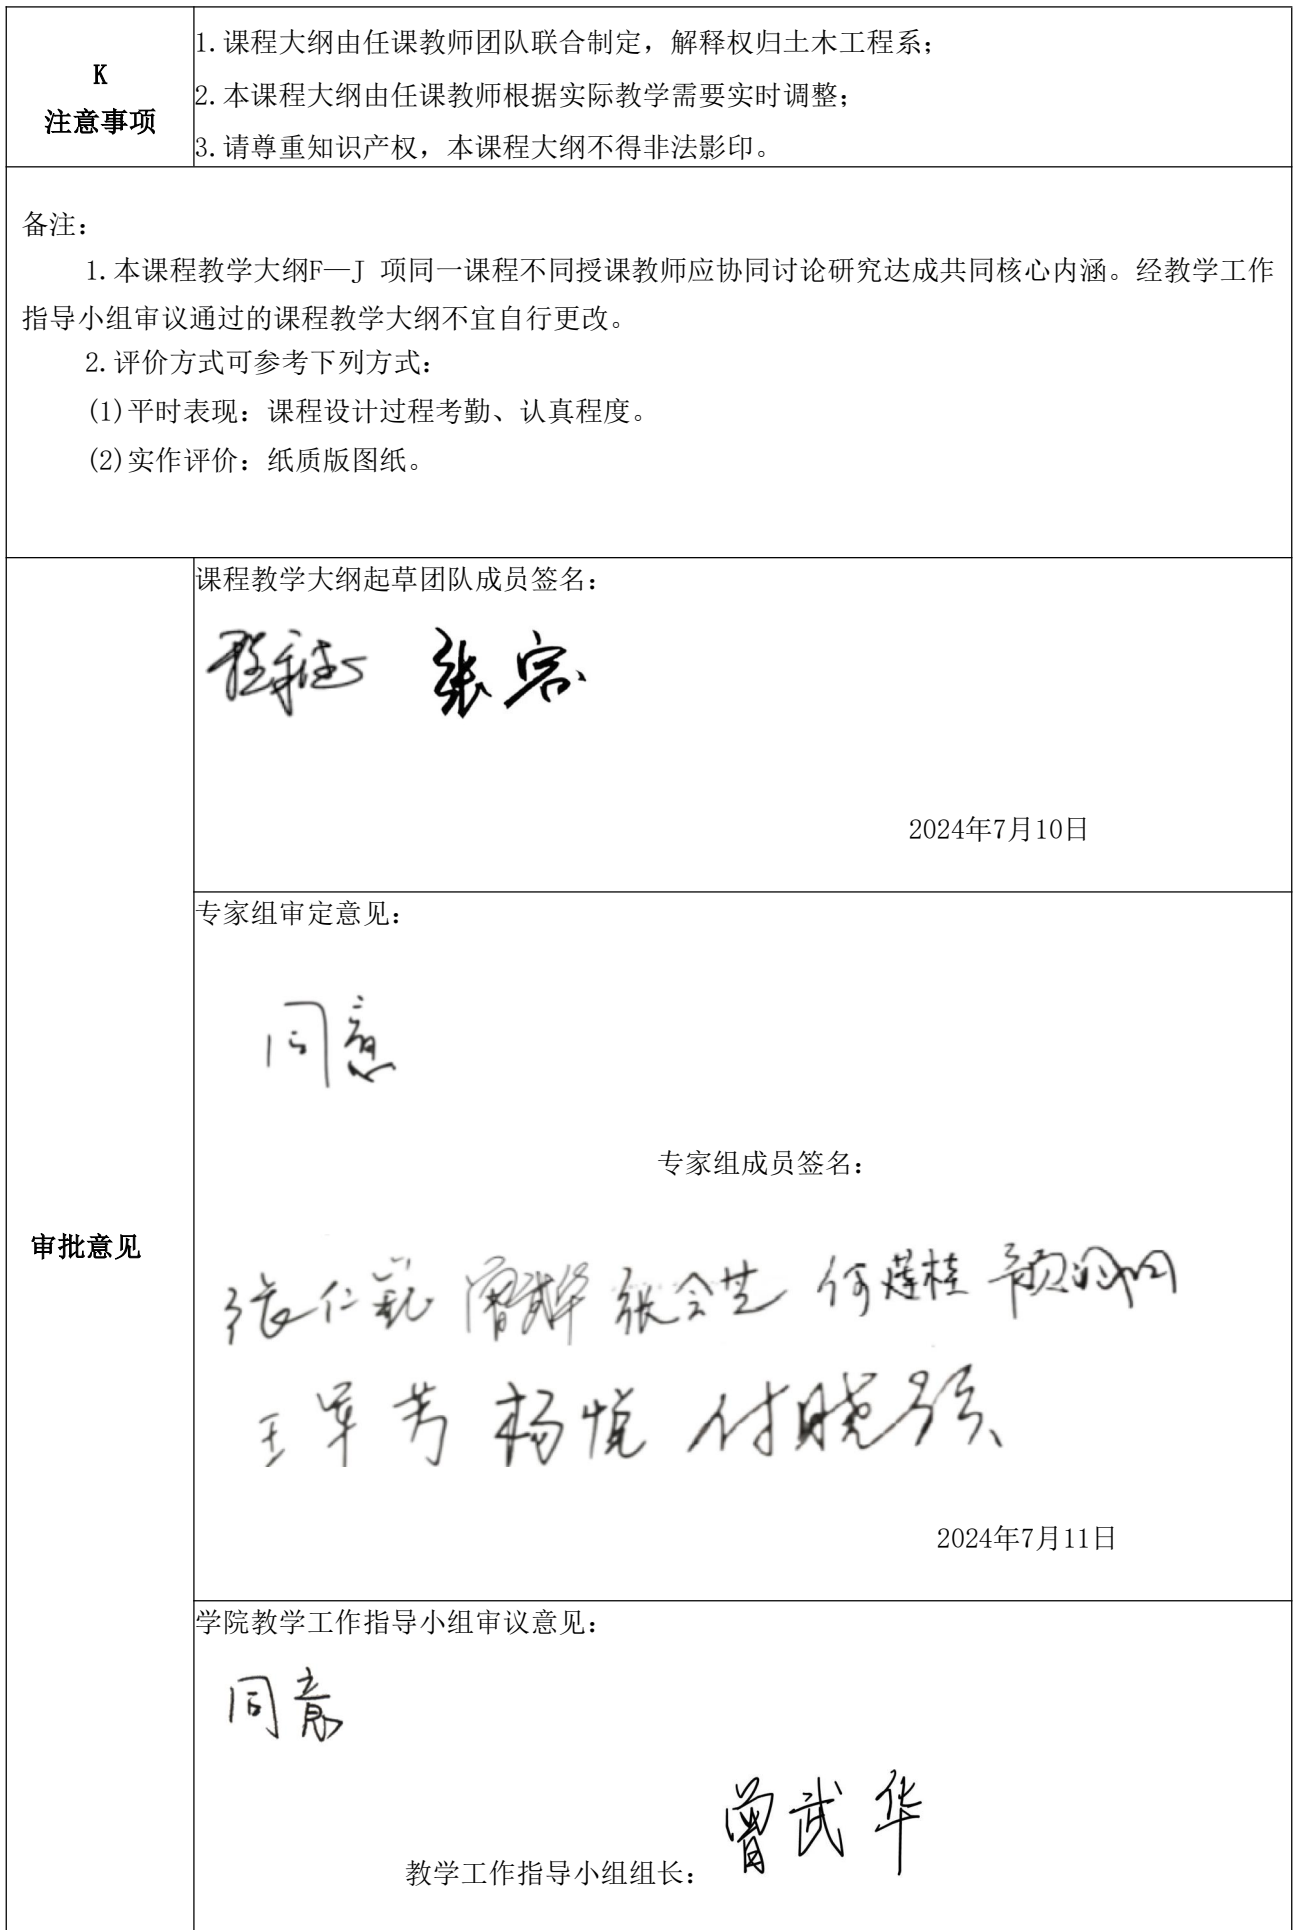 K
注意事项
1.课程大纲由任课教师团队联合制定，解释权归土木工程系；
2.本课程大纲由任课教师根据实际教学需要实时调整；
3.请尊重知识产权，本课程大纲不得非法影印。
备注：
1.本课程教学大纲F—J 项同一课程不同授课教师应协同讨论研究达成共同核心内涵。经教学工作
指导小组审议通过的课程教学大纲不宜自行更改。
2.评价方式可参考下列方式：
(1)平时表现：课程设计过程考勤、认真程度。
(2)实作评价：纸质版图纸。
审批意见
课程教学大纲起草团队成员签名：
张
2024年7月10日
专家组审定意见：
同意
专家组成员签名：
张仁 曾武华 张会芝 何莲桂
王军芳 杨悦 付晓强
2024年7月11日
学院教学工作指导小组审议意见：
同意
教学工作指导小组组长：曾武华